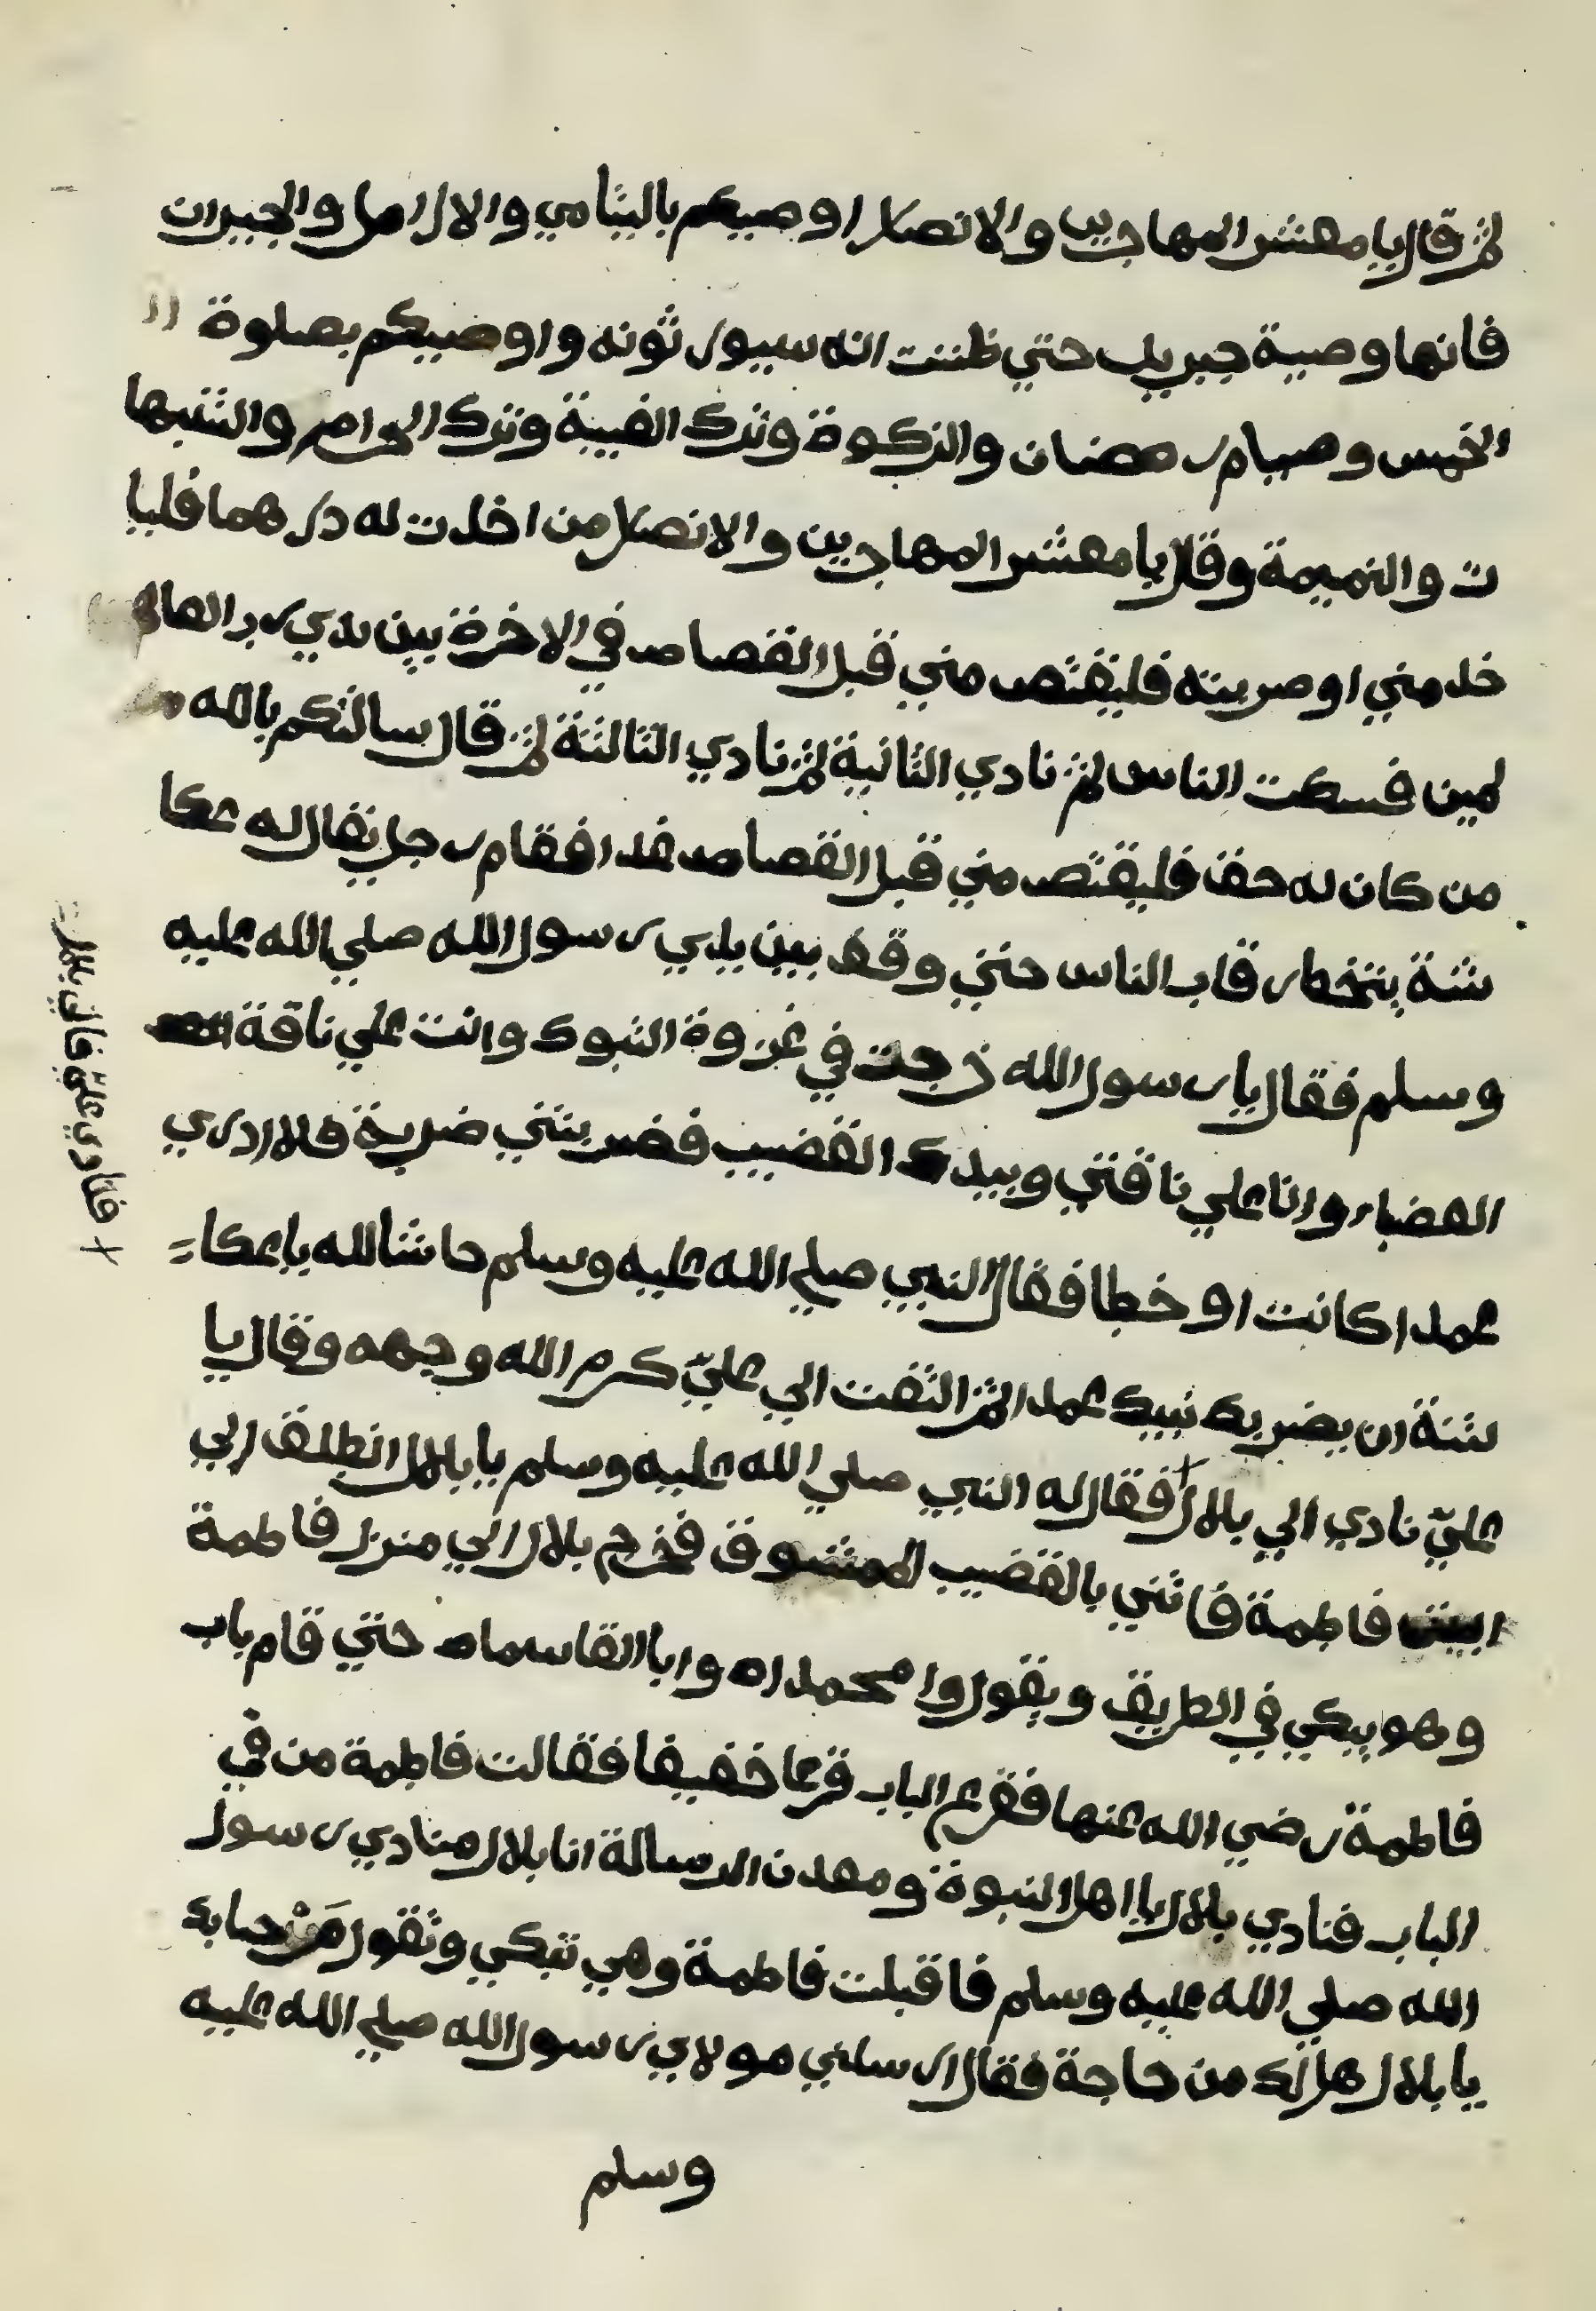 ثم قال يا معشر المهاجرين والانصار اوصيكم باليتامي والارامل والجيران
فانها وصية جبريل حتي ظننت انه سيورثونه واوصيكم بصلوة
الخمس وصيام رمضان والزكوة وترك الغيبة وترك الحرام والشبها
ت والنميمة وقال يا معشر المهاجرين والانصار من اخذت له درهما فليا
خذ مني او ضربته فليقتص مني قبل القصاص في الاخرة بين يدي رب العا
لمين فسكت الناس ثم نادي الثانية ثم نادي الثالثة ثم قال سالتكم بالله
من كان له حق فليقتص مني قبل القصاص غدا فقام رجل يقال له عكا
شة يتخطا رقاب الناس حتي وقف بين يدي رسول الله صلي الله عليه
وسلم فقال يا رسول الله خرجت في غزوة التبوك وانت علي ناقة
العضباء وانا علي ناقتي وبيدك القضيب فضربتني ضربة فلا ادري
عمدا كانت او خطا فقال النبي صلي الله عليه وسلم حاشا لله يا عكا=
شة ان يضربك نبيك عمدا ثم التفت الي عليّ كرم الله وجهه وقال يا
عليّ نادي الي بلال + فقال له النبي صلي الله عليه وسلم يا بلال انطلق الي
البيت فاطمة فاتني بالقضيب الممشوق فخرج بلال الي منزل فاطمة
وهو يبكي في الطريق ويقول وا محمداه وابا القاسماه حتي قام باب
فاطمة رضي الله عنها فقرع الباب قرعا خفيفا فقالت فاطمة من في
الباب فنادي بلال يا اهل النبوة ومعدن الرسالة انا بلال منادي رسول
الله صلي الله عليه وسلم فاقبلت فاطمة وهي تبكي وتقول مَرْحبا بك
يا بلال هل لك من حاجة فقال ارسلني مولاي رسول الله صلي الله عليه
وسلم
+ فنادي عليّ فاتي بلال =